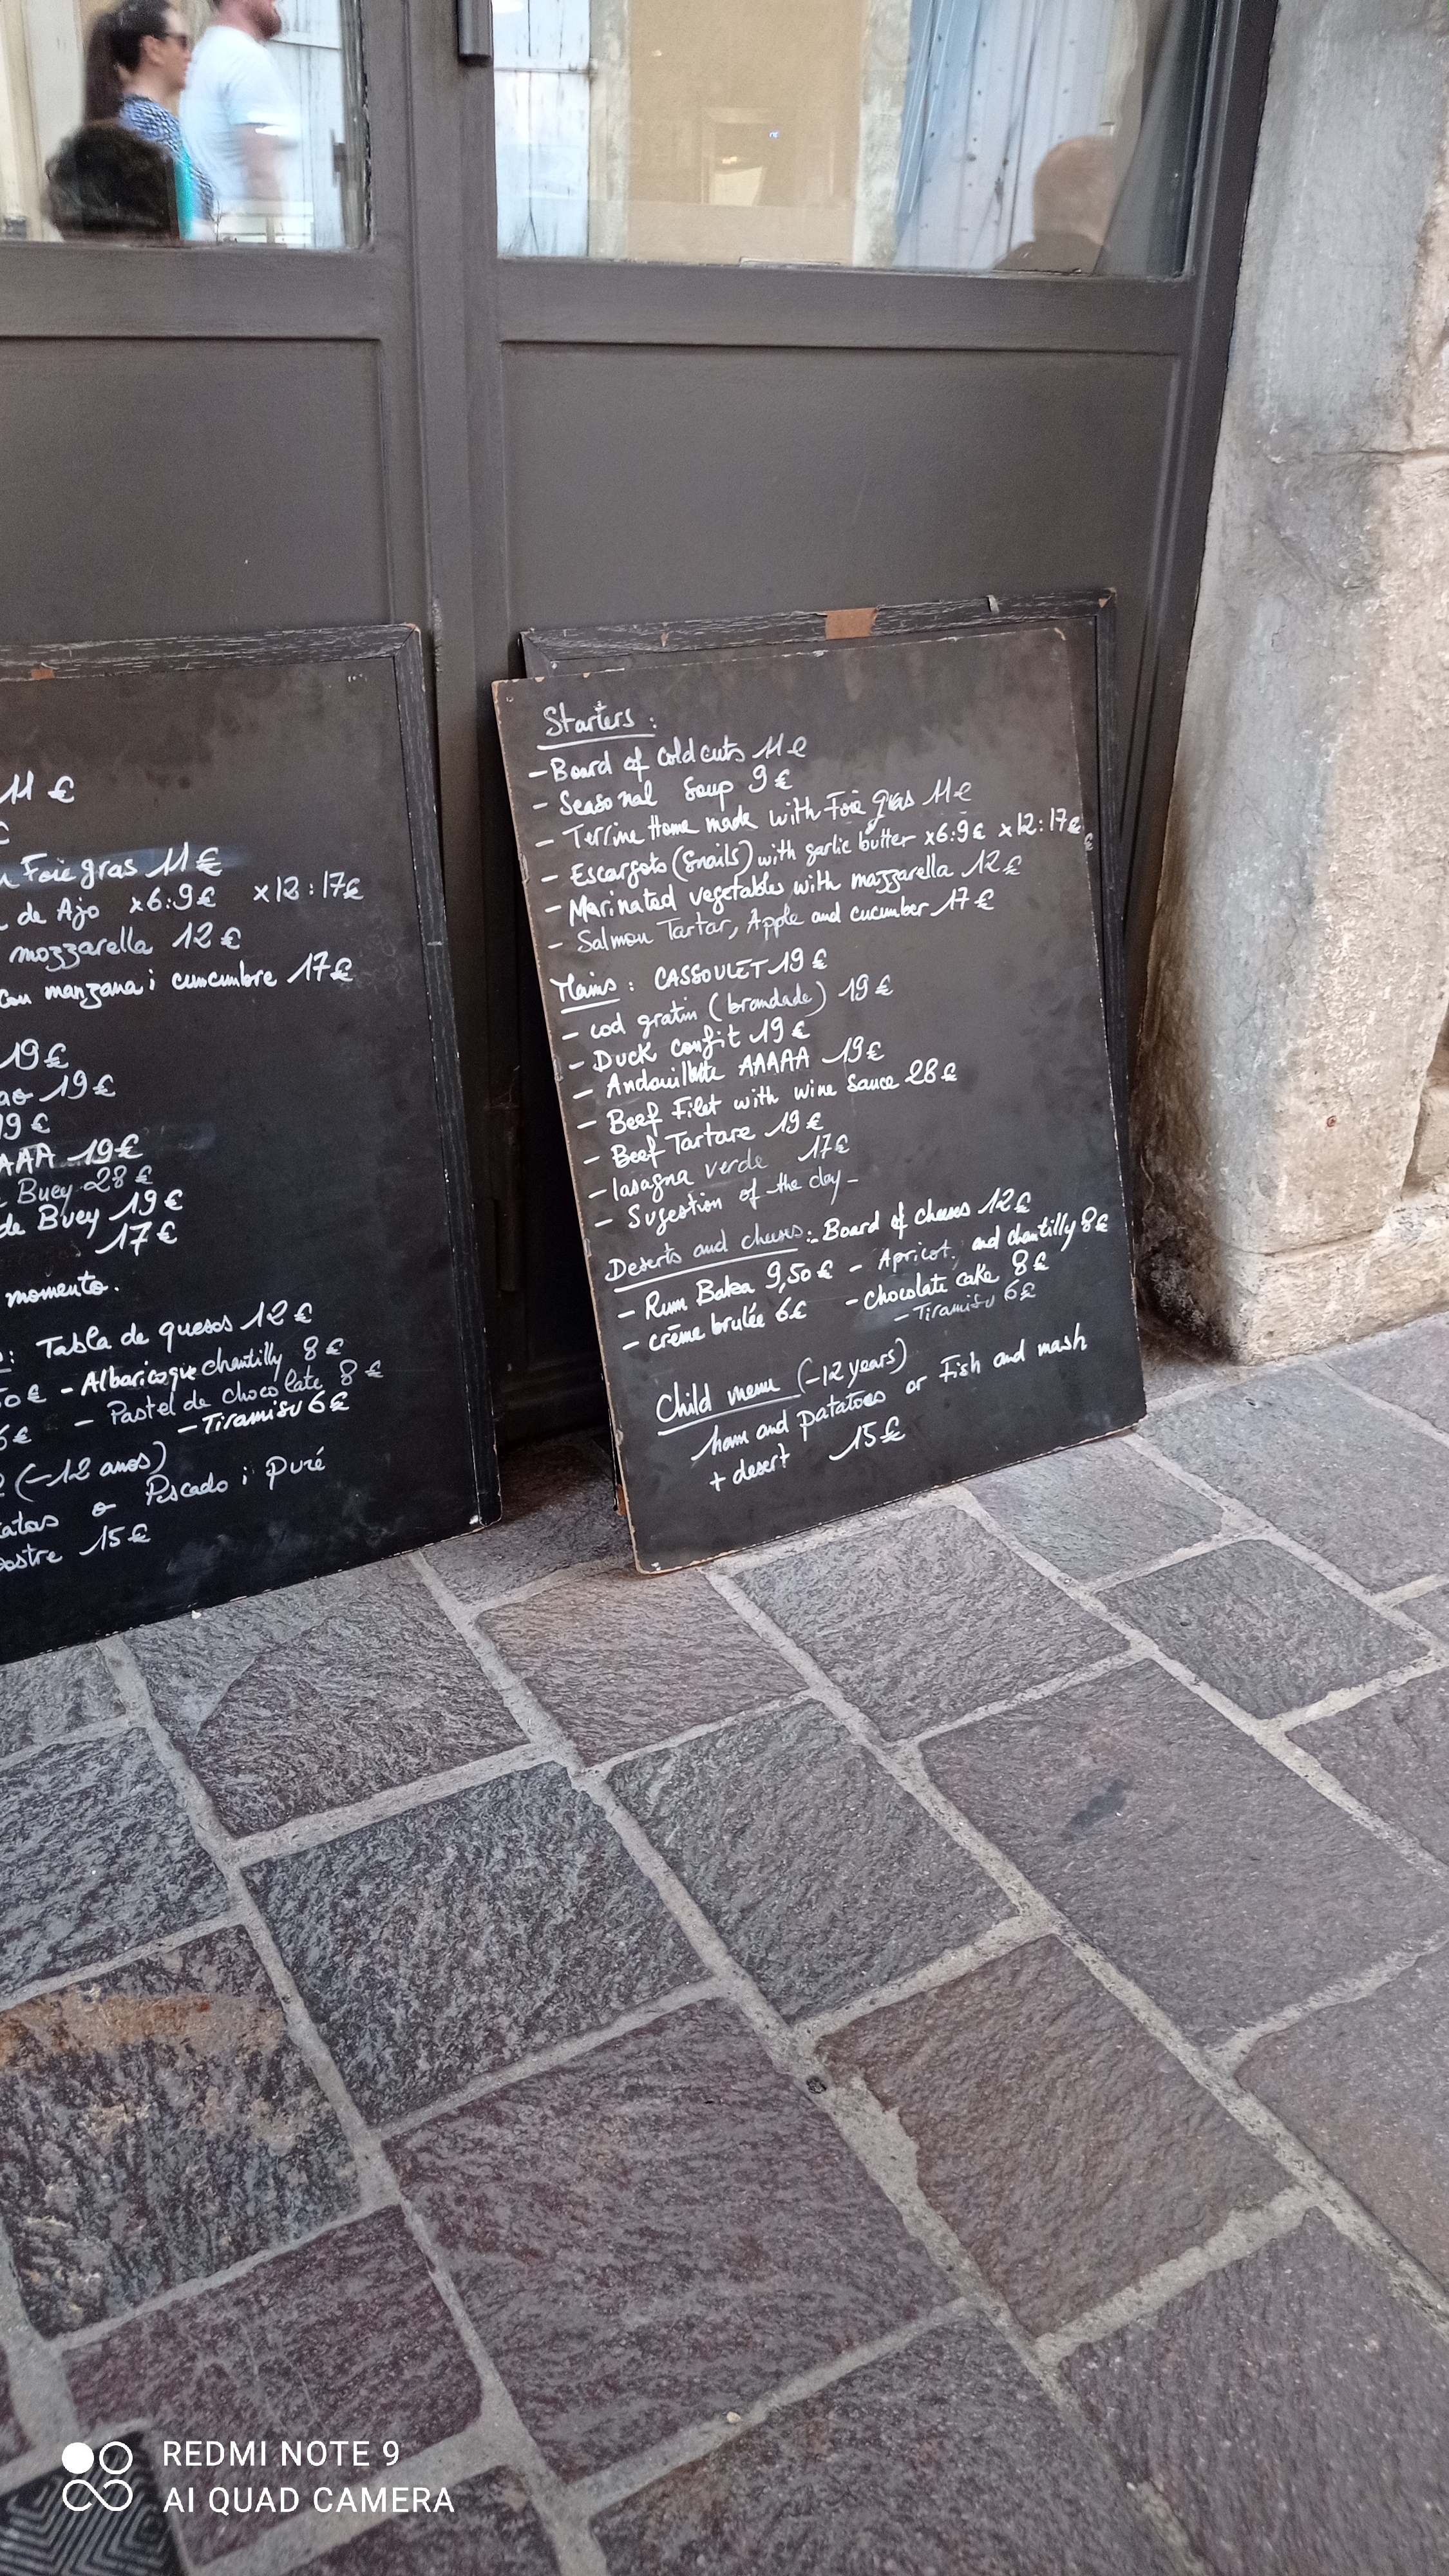 11 €
€
Foie gras 11 €
de Ajo x6:9€ x12:17€
mozzarella 12€
con manzana i cuncumbre 17€
19€
19€
19€
AAA 19€
Buey 28€
de Buey 19€
17€
momento.
: Tabla de quesos 12€
50€ - Albaricoque chantilly 8€
6€ - Pastel de chocolate 8€
- Tiramisu 6€
(-12 anos)
o Pescado i puré
15€
Starters :
- Board of cold cuts 11€
- Seasonal Soup 9€
- Terrine Home made with Foie gras 11€
- Escargots (Snails) with garlic butter x6:9€ x12:17€
€
- Marinated vegetables with mozzarella 12€
- Salmon Tartar, Apple and cucumber 17€
Mains : CASSOULET 19€
- cod gratin (brandade) 19€
- Duck confit 19€
- Andouillette AAAAA 19€
- Beef Filet with wine sauce 28€
- Beef Tartare 19€
- lasagna verde 17€
- Sugestion of the day -
Deserts and cheeses :- Board of cheeses 12€
- Rum Baba 9,50€ - Apricot and chantilly 8€
- crême brulée 6€ - chocolate cake 8€
- Tiramisu 6€
Child menu (-12 years)
ham and patatoes or Fish and mash
+ desert 15€
REDMI NOTE 9
AI QUAD CAMERA